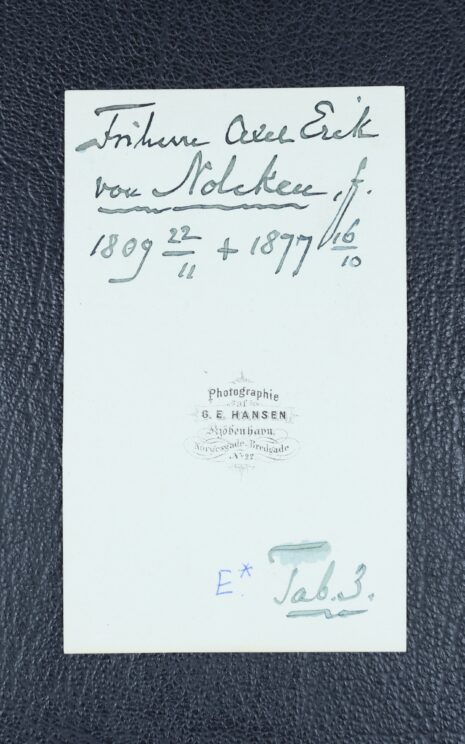 Friherre Axel Erik
von Nolcken, f.
1809 22/11 + 1877 16/10
Photographie
af
G. E. HANSEN
Kjöbenhavn.
Norgesgade-Bredgade
No 22
E.* Tab. 3.